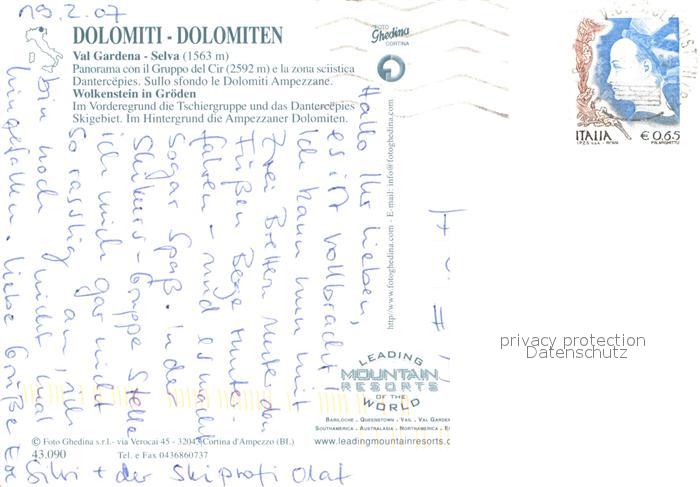 19.2.07
DOLOMITI - DOLOMITEN
Val Gardena - Selva (1563 m)
Panorama con il Gruppo del Cir (2592 m) e la zona sciistica
Dantercëpies. Sullo sfondo le Dolomiti Ampezzane.
Wolkenstein in Gröden
Im Vorderegrund die Tschiergruppe und das Dantercëpies
Skigebiet. Im Hintergrund die Ampezzaner Dolomiten.
FOTO
Ghedina
CORTINA
Hallo Ihr Lieben,
es ist vollbracht!
Ich kann nun mit
zwei Brettern unter den
Füßen Berge runter-
fahren - und es macht
sogar Spaß. In der
Skikurs-Gruppe stelle
ich mich gar nicht
so rasslig an, ich
bin noch nicht mal
hingefallen. Liebe Grüße
Silvi + der Skiprofi Olaf
http://www.fotoghedina.com - E-mail: info@fotoghedina.com
LEADING
MOUNTAIN
RESORTS
OF THE
WORLD
BARILOCHE - QUEENSTOWN - VAIL - VAL GARDE
SOUTHAMERICA - AUSTRALASIA - NORTHAMERICA - E
www.leadingmountainresorts.c
© Foto Ghedina s.r.l.- via Verocai 45 - 32043 Cortina d'Ampezzo (BL)
43.090
Tel. e Fax 0436860737
ITALIA
€ 0,65
I.P.Z.S. S.p.A. - ROMA
privacy protection
Datenschutz